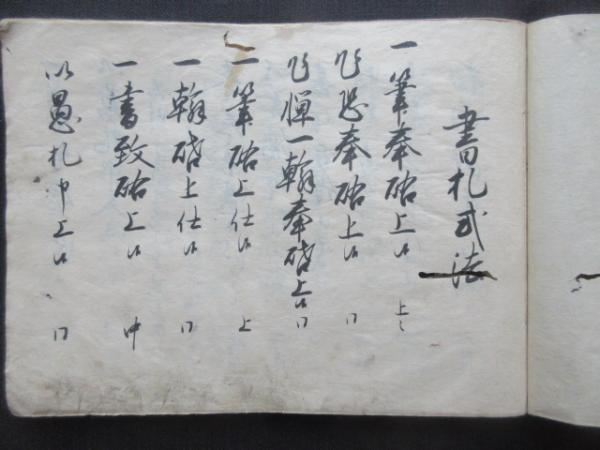 書札式法
一筆奉啓上候 上々
乍恐奉啓上候 口
乍憚一翰奉啓上候 口
一筆啓上仕候 上
一翰啓上仕候 口
一書致啓上候 中
以愚札申上候 口